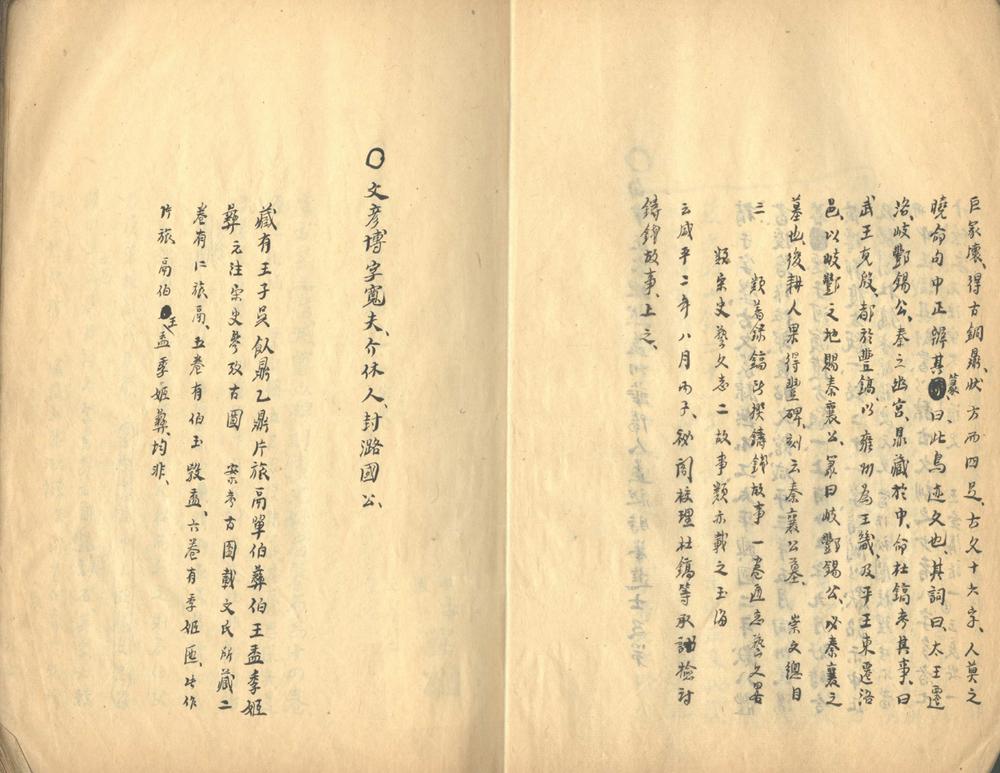 巨冢壞、得古銅鼎、狀方而四足、古文十六字、人莫之
曉、命句中正辨其篆、曰、此鳥迹文也、其詞曰、太王遷
洛、岐酆錫公、秦之幽宮、鼎藏於中、命杜鎬考其事、曰
武王克殷、都於豐鎬、以雍州為王畿、及平王東遷洛
邑、以岐酆之地賜秦襄公、篆曰岐酆錫公、必秦襄之
墓也、後耕人果得豐碑、刻云秦襄公墓、 崇文總目
三 類著錄鎬所撰鑄錢故事一卷通志藝文略
類宋史藝文志二故事類亦載之玉海
云咸平二年八月丙子、秘閣校理杜鎬等承詔檢討
鑄錢故事、上之、
〇文彥博字寬夫、介休人、封潞國公、
藏有王子吳飤鼎乙鼎片旅鬲單伯彝伯王盉季姬
彝 元注宋史參攷古圖 案考古圖載文氏所藏二
卷有仁旅鬲、五卷有伯玉敦盉、六卷有季姬匜、此作
片旅鬲伯王盉季姬彝、均非、